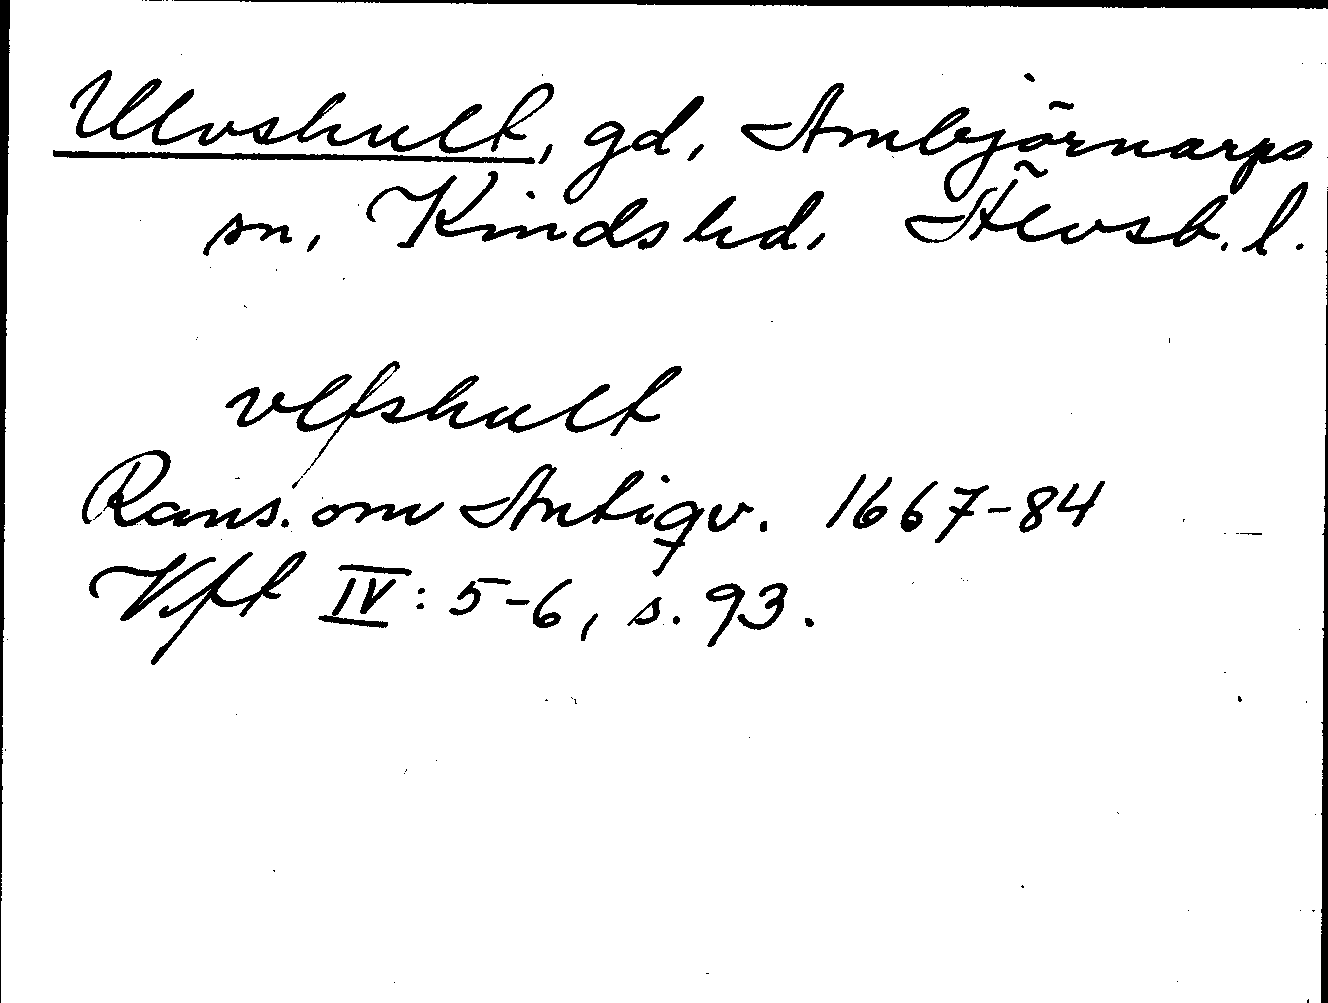 Ulvshult, gd, Ambjörnarps
sn, Kinds hd, Älvsb. l.
vlfshult
Rans. om Antiqv. 1667-84
Vft IV: 5-6, s. 93.